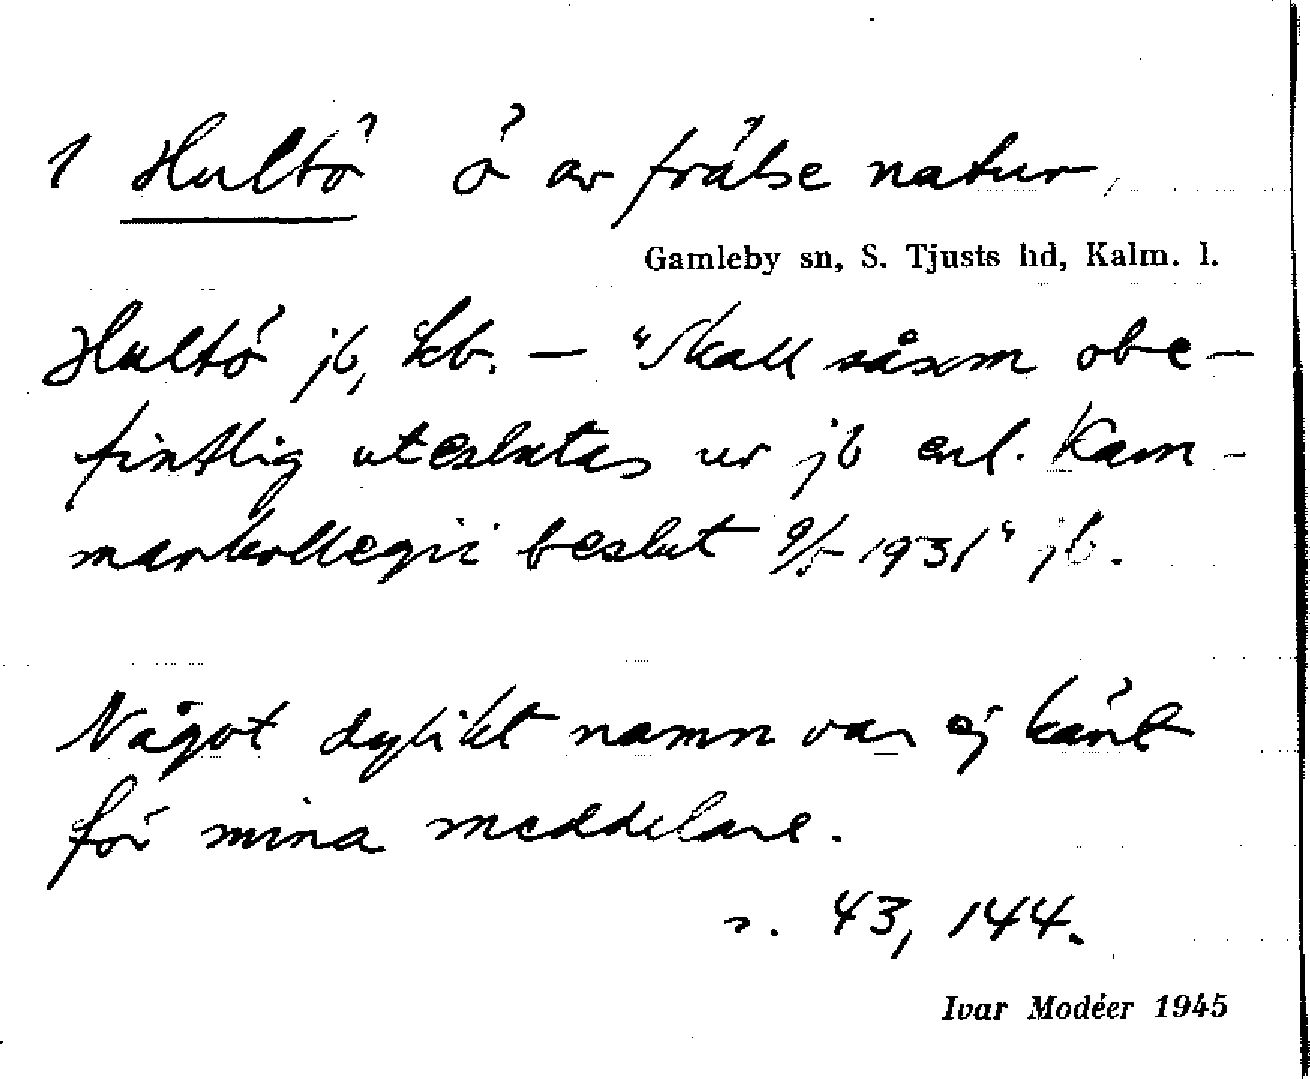 1 Hultö ö av frälse natur,
Gamleby sn, S. Tjusts hd, Kalm. l.
Hultö jb, kb. — "Skall såsom obe-
fintlig uteslutas ur jb enl. Kam-
markollegii beslut 9/5 1931" jb.
Något dylikt namn var ej känt
för mina meddelare.
s. 43, 144.
Ivar Modéer 1945